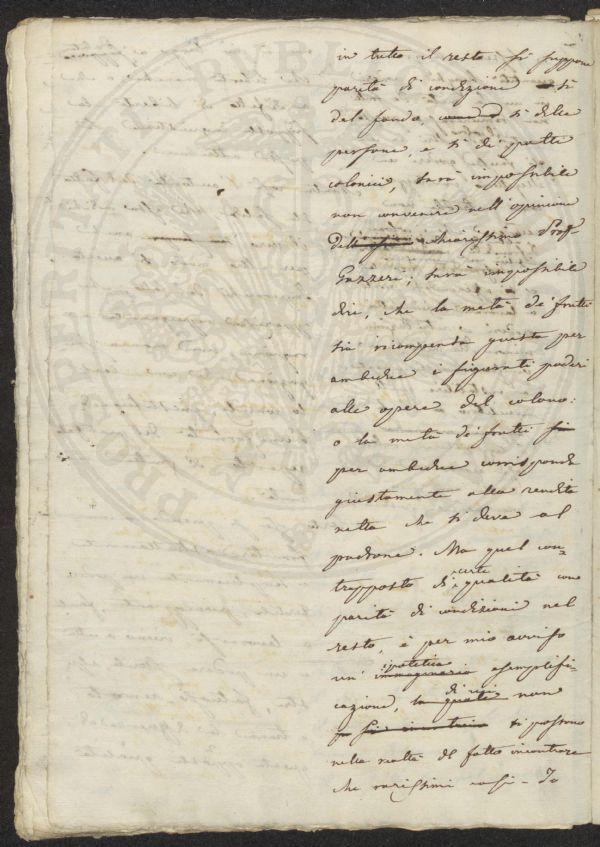 in tutto il resto si suppone
parità di condizione si
del fondo, come si delle
persone, e si de' patti
colonici sarà impossibile
non convenire nell'opinione
dell chiarissimo Prof.
Gazzeri; sarà impossibile
dire, che la metà de' frutti
sia ricompensa giusta per
ambidue i figurati poderi
alle opere del colono:
o la metà de' frutti
per ambidue corrisponda
giustamente alla rendita
netta che si deve al
padrone. Ma quel con-
trapposto di certe qualità con
parità di condizioni nel
resto, è per mio avviso
un' immaginaria ipotetica esemplifi-
cazione, la quale di cui non
si possono
nella realtà del fatto incontrare
che rarissimi casi - Io